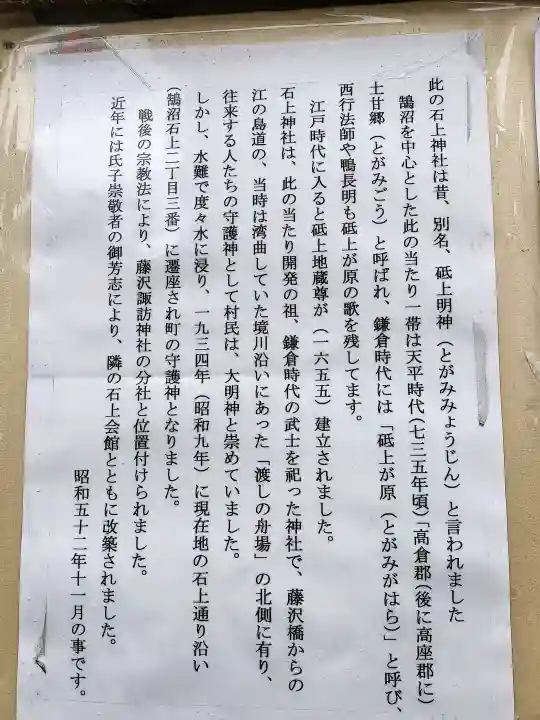 此の石上神社は昔、別名、砥上明神（とがみみょうじん）と言われました
鵠沼を中心とした此の当たり一帯は天平時代（七三五年頃）「高倉郡（後に高座郡に）
土甘郷（とがみごう）と呼ばれ、鎌倉時代には「砥上が原（とがみがはら）」と呼び、
西行法師や鴨長明も砥上が原の歌を残してます。
江戸時代に入ると砥上地蔵尊が（一六五五）建立されました。
石上神社は、此の当たり開発の祖、鎌倉時代の武士を祀った神社で、藤沢橋からの
江の島道の、当時は湾曲していた境川沿いにあった「渡しの舟場」の北側に有り、
往来する人たちの守護神として村民は、大明神と崇めていました。
しかし、水難で度々水に浸り、一九三四年（昭和九年）に現在地の石上通り沿い
（鵠沼石上二丁目三番）に遷座され町の守護神となりました。
戦後の宗教法により、藤沢諏訪神社の分社と位置付けられました。
近年には氏子崇敬者の御芳志により、隣の石上会館とともに改築されました。
昭和五十二年十一月の事です。